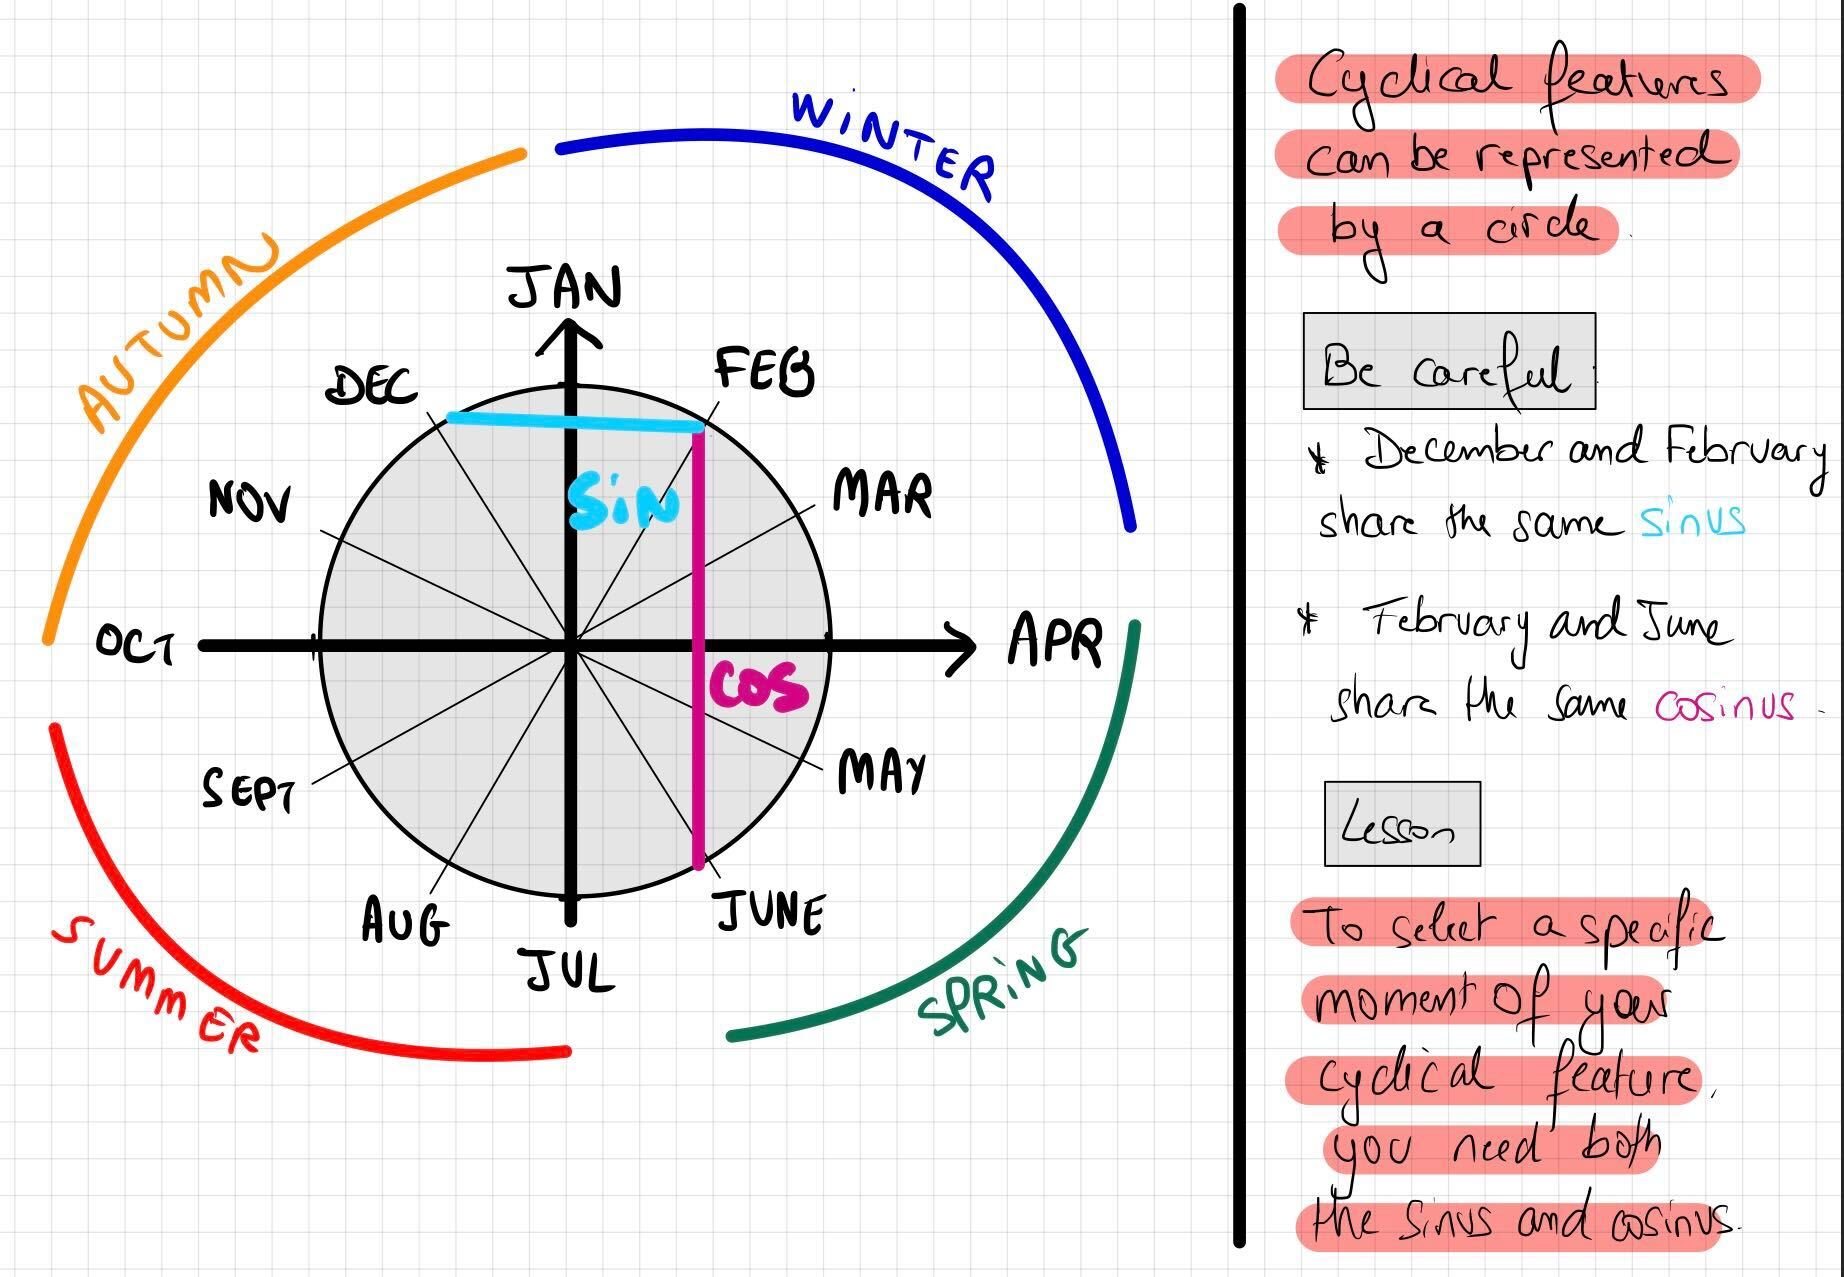 WiNTER
AUTUMN
JAN
DEC
FEB
NOV
MAR
SiN
OCT
APR
COS
SEPT
MAY
AUG
JUNE
JUL
SUMMER
SPRiNG
Cyclical features
can be represented
by a circle.
Be careful:
* December and February
share the same sinus
* February and June
share the same cosinus.
Lesson
To select a specific
moment of your
cyclical feature,
you need both
the sinus and cosinus.